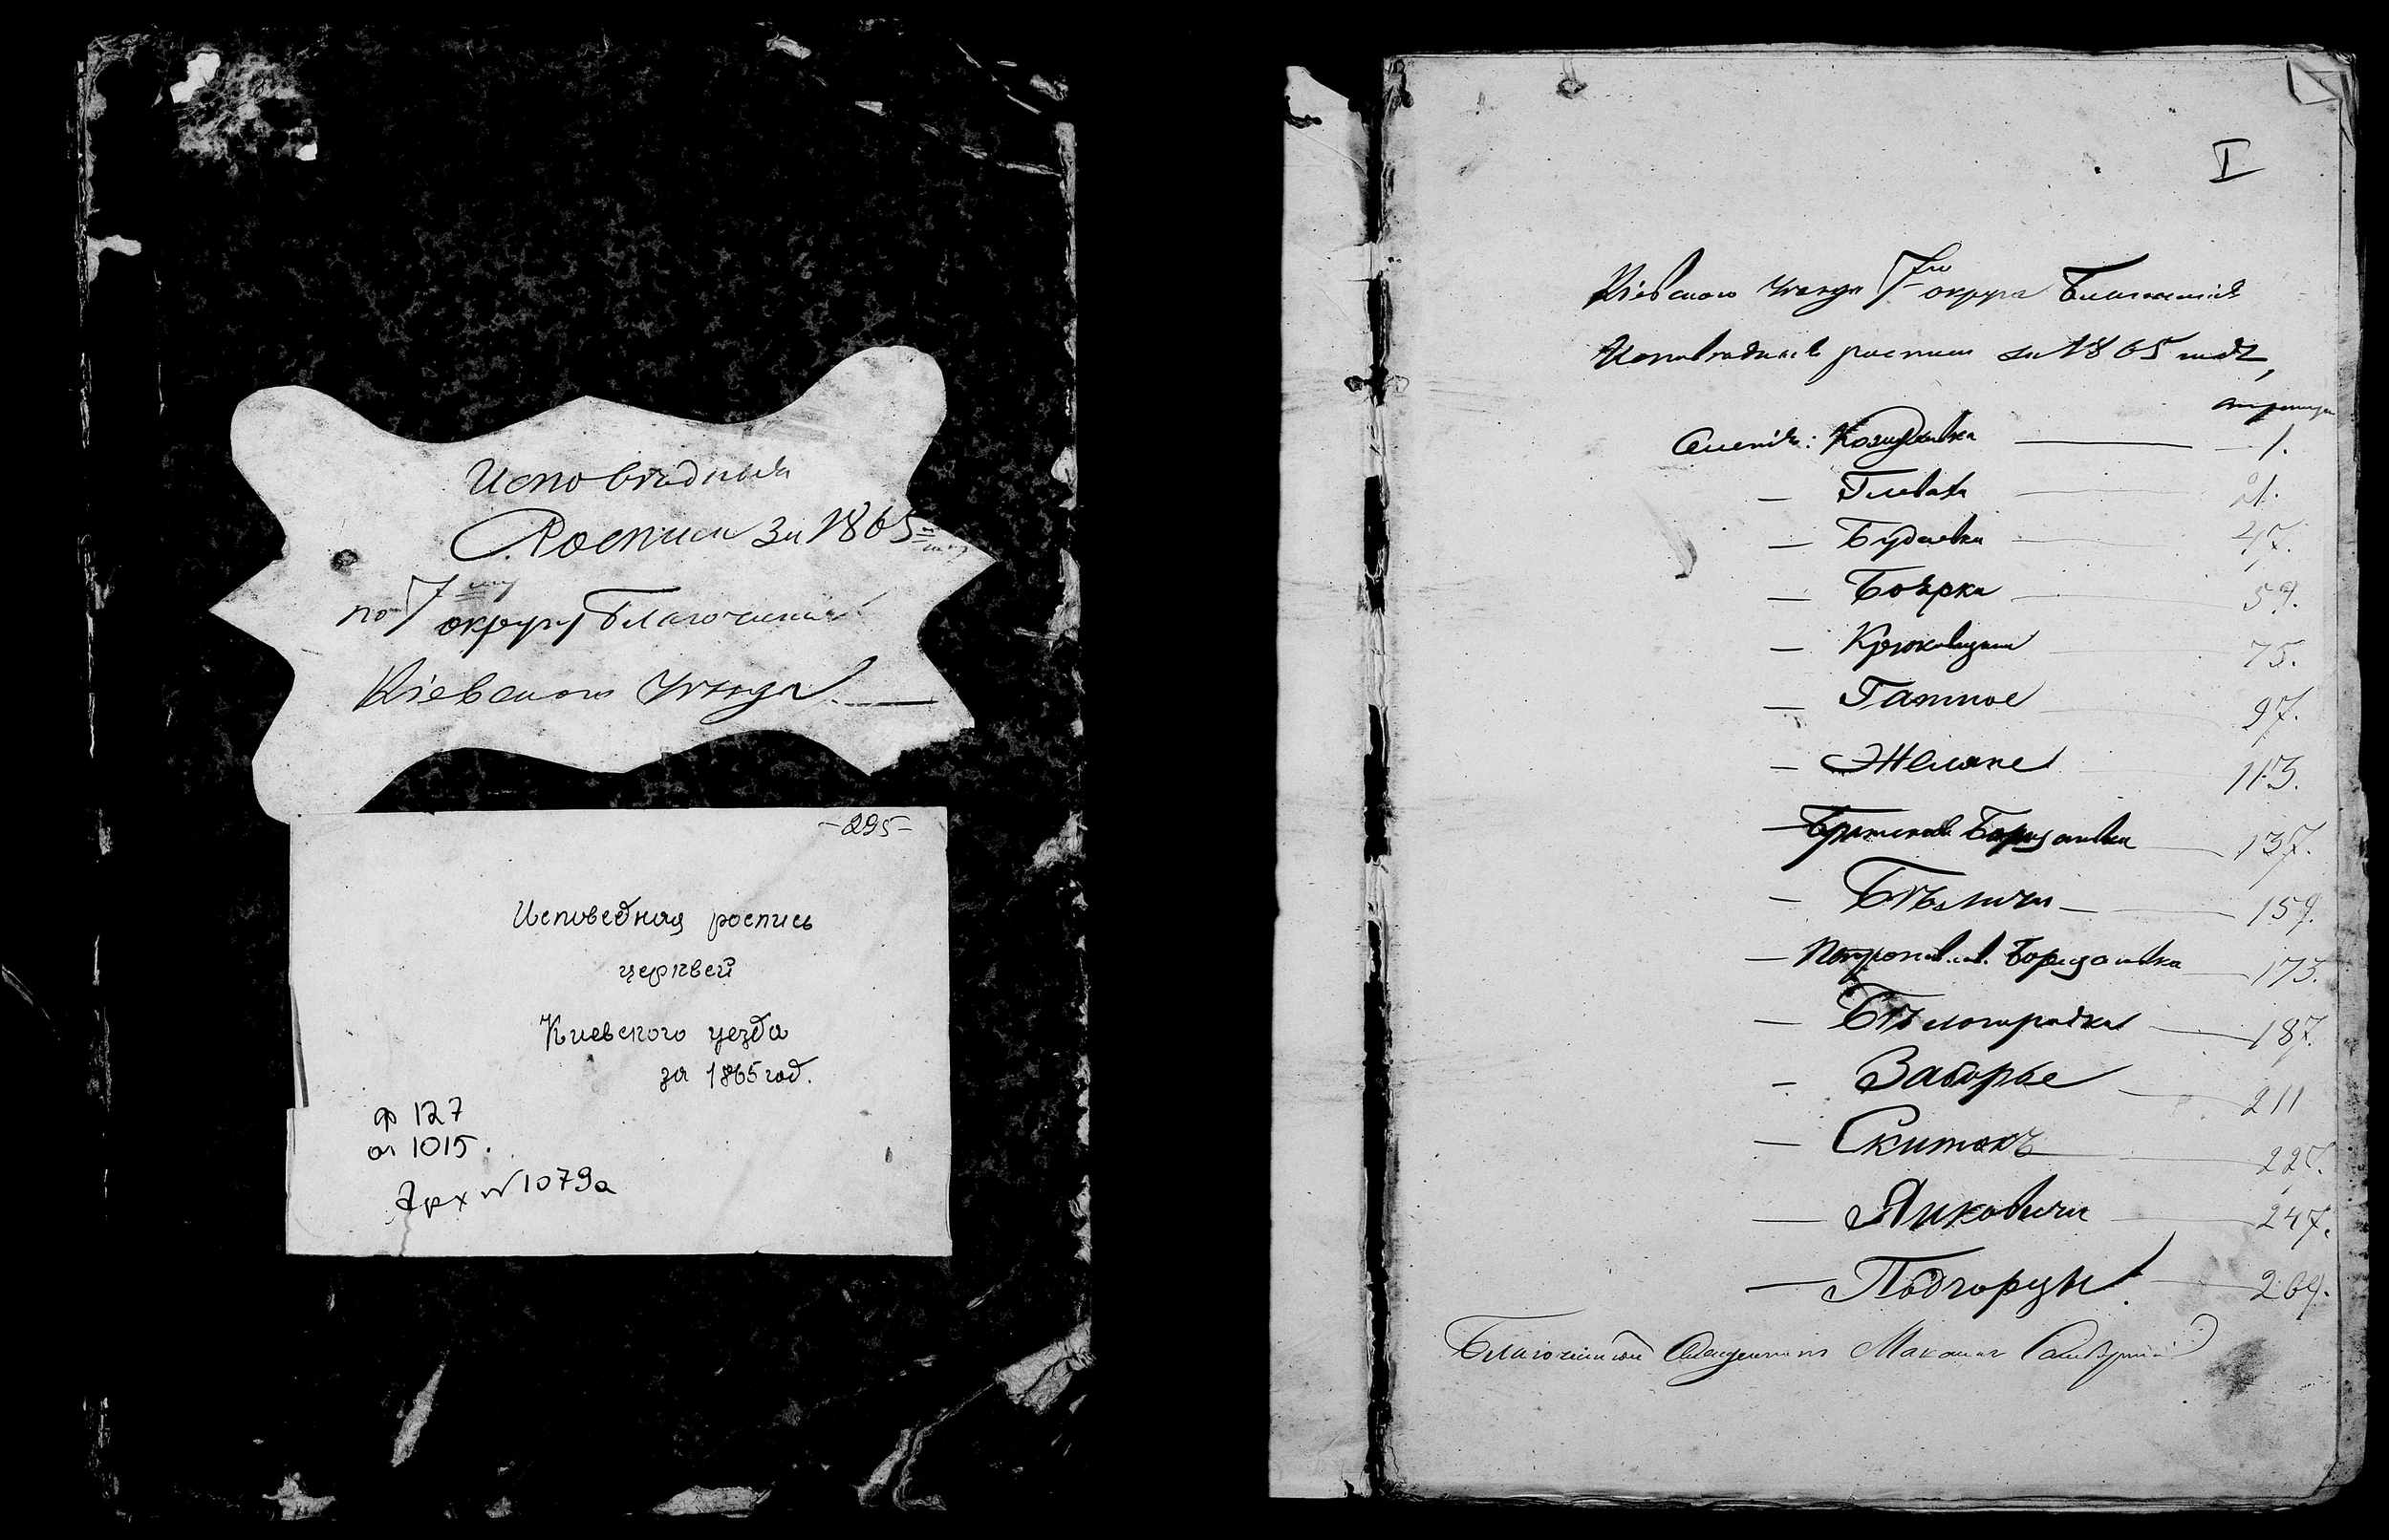 Исповѣдныя
Росписи за 1865
по 7му округу Благочинія
Кіевскаго уѣзда.
-295-
Исповедная роспись
церквей
Киевского уезда
за 1865 год.
ф 127
оп 1015.
Арх № 1079а
I
Кіевского уѣзда 7го округа Благочинія
Исповѣдныя росписи за 1865 годъ,
страницы
Селеній: — 1.
— Глеваха — 21.
— Будаевка — 47.
— Боярка — 59.
— Крюковщина — 75.
— Гатное — 97.
— Жиляне — 113.
— Борщаговка — 137.
— Бѣличи — 159.
— Борщаговка — 173.
— Бѣлогородка — 187.
— Заборье — 211
— Скитокъ — 227.
— Янковичи — 247.
— Подгорцы — 269.
Благочинный Священникъ